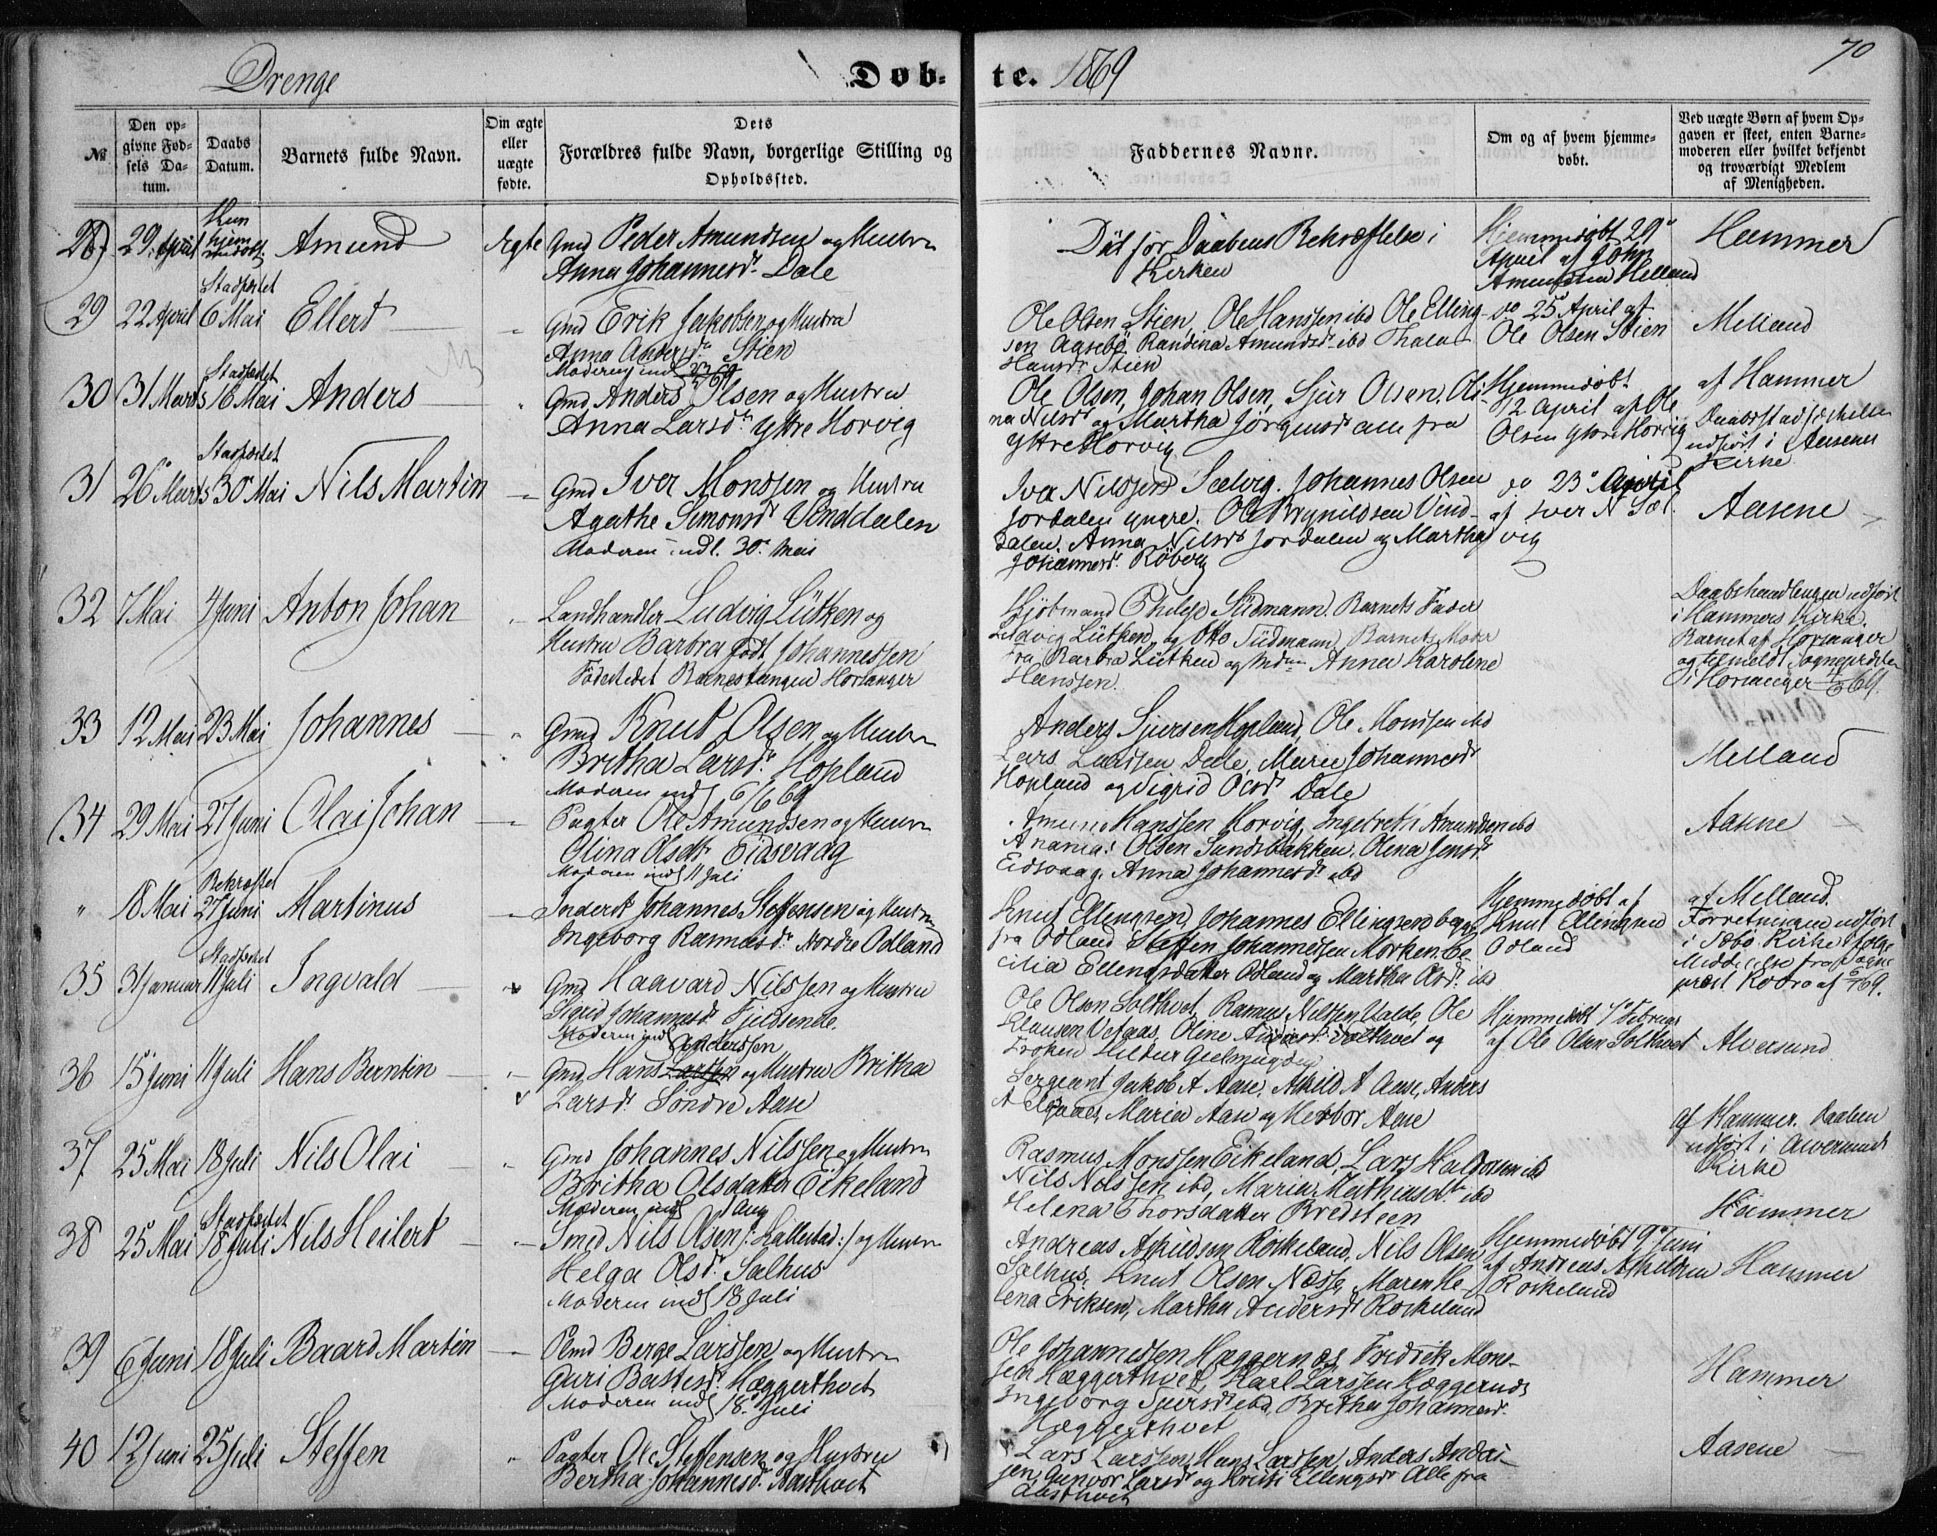 70
Drenge
Døb-
te. 1869
№
Den op-
givne Fød-
sels Da-
tum.
Daabs
Datum.
Barnets fulde Navn.
Om ægte
eller
uægte
fødte.
Dets
Forældres fulde Navn, borgerlige Stilling og
Opholdssted.
Faddernes Navne.
Om og af hvem hjemme-
døbt.
Ved uægte Børn af hvem Op-
gaven er skeet, enten Barne-
moderen eller hvilket bekjendt
og troværdigt Medlem
af Menigheden.
28 29 April Kun
hjem
medøbt Amund Ægte Gmd Peder Amundsen og Hustru
Anna Johannesd. Dale
Død før Daabens Bekræftelse i
Kirken
Hjemmedøbt 29
April af John
Amundsen Helland
Hammer
29 22 April Stadfæstet
6 Mai Ellert " Gmd Erik Jakobsen og Hustru
Anna Andersd. Stien
Moderen indl
Ole Olsen Stien, Ole Hanssen ibd Ole Elling-
sen Aasebø Randina Amundsd ibd
Hansd. Stien
do 25 April af
Ole Olsen Stien
Melland
30 31 Marts Stadfæstet
16 Mai Anders " Gmd Anders Olsen og Hustru
Anna Larsd. Yttre Horvig
Ole Olsen, Johan Olsen, Sjur Olsen, Oli-
na Nilsd og Martha Jørgensd alle fra
Yttre Horvig
Hjemmedøbt
12 April af Ole
Olsen Ytre Horvig
af Hammer
Daabsstadfæstelsen
udført i Aasene
Kirke
31 26 Marts Stadfæstet
30 Mai Nils Martin " Gmd Iver Monssen og Hustru
Agathe Simonsd Vinddalen
Moderen indl. 30 Mai
Iver Nilssen Sælvig. Johannes Olsen
Jordalen yngre. Ole Brynildsen Vind-
dalen. Anna Nilsd Jordalen og Martha
Johannesd. Røberg
do 23 April
af Iver N Sæl-
vig
Aasene
32 7 Mai 4 Juni Anton Johan " Landhandler Ludvig Lütken og
Hustru Barbra født Johannessen
Fødestedet Barnestangen Hosanger
Barnets Fader
Ludvig Lütken, og Otto Tüdmann, Barnets Moder
Barbra Lütken og Anna Karoline
Hanssen.
Daabshandlingen udført
i Hammers Kirke.
Barnet af Hosanger
og tilmeldt Sognepræsten
i Hosanger 4/6 69.
33 12 Mai 23 Mai Johannes " Gmd Knut Olsen og Hustru
Britha Larsd. Hopland
Moderen indl 6/6 69
Anders Sjursen Hopland, Ole Monssen ibd
Lars Larssen Dale, Maria Johannesd
Hopland og Sigrid Olsd Dale
Melland
34 29 Mai 27 Juni Olai Johan " Pagter Ole Amundsen og Hustru
Olina Olsdt Eidsvaag
Moderen indl 11 Juli
Amund Hanssen Horvig, Ingebreth Amundsen ibd
Ananias Olsen Sundsbakken. Olena Jensd.
Eidsvaag. Anna Johannesd. ibd
Aasene
" 18 Mai Bekræftet
27 Juni Martinus " Inderst Johannes Steffensen og Hustru
Ingeborg Rasmusd. Nordre Odland
Knut Ellingsen, Johannes Ellingsen begge
fra Odland Steffen Johannessen Morken. Ce-
cilia Ellingsdatter Odland og Martha Olsd. ibd
Hjemmedøbt af
Knut Ellingsen
Odland
af Melland.
Forretningen udført
i Sæbø Kirke ifølge
Meddelelse fra Sogne-
præst
35 3 Januar Stadfæstet
11 Juli Ingvald " Gmd Haavard Nilssen og Hustru
Sigrid Johannesd. Fjeldsende
Moderen indl
Ole Olsen Solthvet, Rasmus Nilssen Valde, Ole
Klausen Vefaas. Oline Solthvet og
Frøken Hildur
Hjemmedøbt 7 Februar
af Ole Olsen Solthvet
Alversund
36 15 Juni 11 Juli Hans Berntin " Gmd Hans Anderssen og Hustru Britha
Larsd. Søndre Aase
Sergeant Jakob A Aase, Askild A Aase, Anders
Maria Aase og Herbor Aase
af Hammer. Daaben
udført i Alversunds
Kirke
37 25 Mai 18 Juli Nils Olai " Gmd Johannes Nilssen og Hustru
Britha Olsdatter Eikeland
Moderen indl 1 Aug
Rasmus Monssen Eikeland, Lars Haldorsen ibd
Nils Nilssen ibd, Maria Mathiasdt ibd
Helena Thorsdatter Bredsteen
Hammer
38 25 Mai Stadfæstet
18 Juli Nils Heilert " Smed Nils Olsen /: Kallestad :/ og Hustru
Helga Olsd. Salhus
Moderen indl 18 Juli
Andreas Askildsen Roskeland, Nils Olsen
Salhus. Knut Olsen Nesse, Maren He-
lena Eriksen, Martha Andersd. Roskeland
Hjemmedøbt 9 Juni
af Andreas Askildsen
Roskeland
Hammer
39 6 Juni 18 Juli Baard Martin " Plmd Berge Larssen og Hustru
Guri Baltesd. Hæggerthvet
Moderen indl 18 Juli
Ole Johannessen Hæggernæs, Fredrik Mons-
sen Hæggerthvet, Karl Larssen Hæggernæs
Ingeborg Sjursd ibd, Britha Johannesd.
Hæggerthvet
Hammer
40 12 Juni 25 Juli Steffen " Pagter Ole Steffensen og Hustru
Bertha Johannesd. Aasthvet
Lars Larssen, Hans Larssen, Anders Ander-
sen, Gunvor Larsd og Kristi Ellingsd. Alle fra
Aasthvet
Aasene